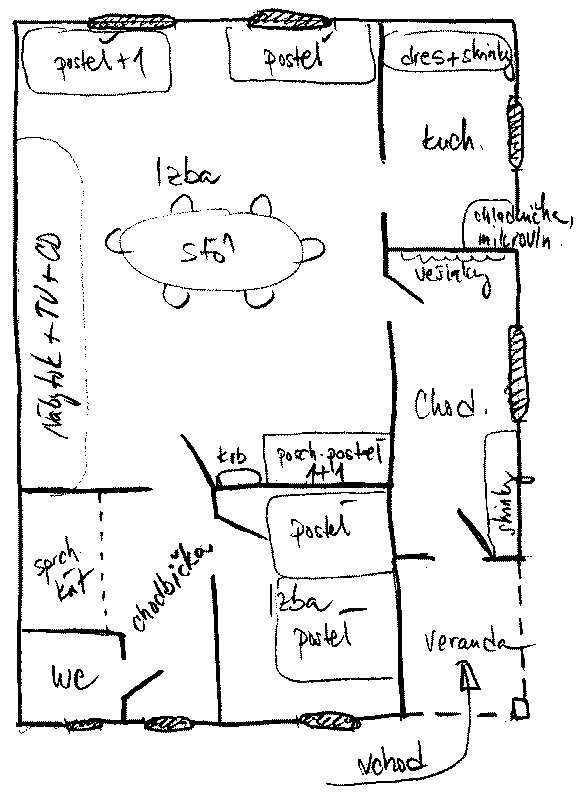 posteľ+1
posteľ
dres+skrinky
kuch.
Izba
chladnička,
mikrovln.
stôl
vešiaky
Nábytok + TV + CD
Chod.
krb
posch. posteľ
1+1
skrinky
posteľ
sprch
kút
chodbička
Izba
posteľ
veranda
WC
vchod